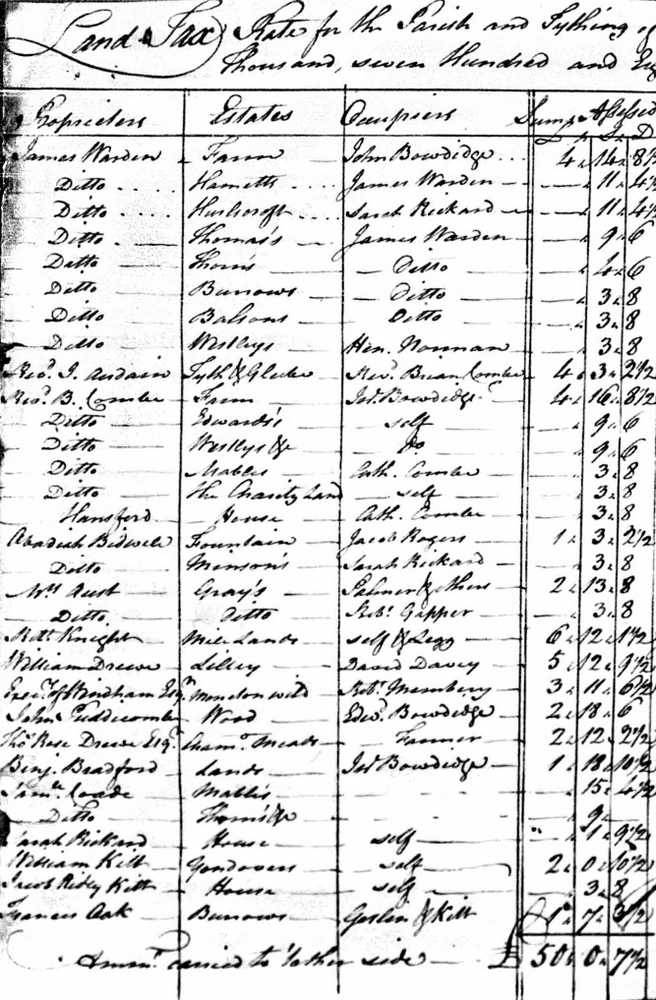 Land Tax Rate for the Parish and Tything of
thousand, seven Hundred and
Proprietors Estates Occupiers Sums Assessed
£ S D
James Warden Farm John Bowdidge 4 14 8½
Ditto Hametts James Warden 11 4½
Ditto Sarah Rickard 11 4½
Ditto Thomas's James Warden 9 6
Ditto Thorn's Ditto 4 6
Ditto Burrows Ditto 3 8
Ditto Balsons Ditto 3 8
Ditto Westleys Hen. Norman 3 8
Revd. J. Tyth & Glebe Revd. Brian Combe 4 3 2½
Revd. B. Combe Farm Bowdidge 4 16 8½
Ditto Edwards's self 9 6
Ditto Westlys &c Do 9 6
Ditto Mables Cath. Combe 3 8
Ditto The Charity Land self 3 8
Hansford House Cath. Combe 3 8
Fountain Jacob Rogers 1 3 2½
Ditto Minson's Sarah Rickard 3 8
Mrs Aust Gray's Palmer & others 2 13 8
Ditto Ditto Robt. Gapper 3 8
Robt. Knight Mile Lands self & Legg 6 12 1½
William Drewe Lilley David Davey 5 12 9½
Windham Esqr. Robt. Membery 3 11 6½
John Wood Edwd. Bowdidge 2 18 6
Thos. Rose Drewe Esqr. Meads Farmer 2 12 2½
Benj. Bradford Lands Bowdidge 1 18 10½
Saml. Coade Mables 15 4½
Ditto Thorns &c 9
Sarah Rickard House self 1 9½
William Kitt Gondovers self 2 0 10½
Jacob Ridley Kitt House self 3 8
Francis Oak Burrows Goslin & Kitt 1 7 3½
carried to t'other side £ 50 0 7½